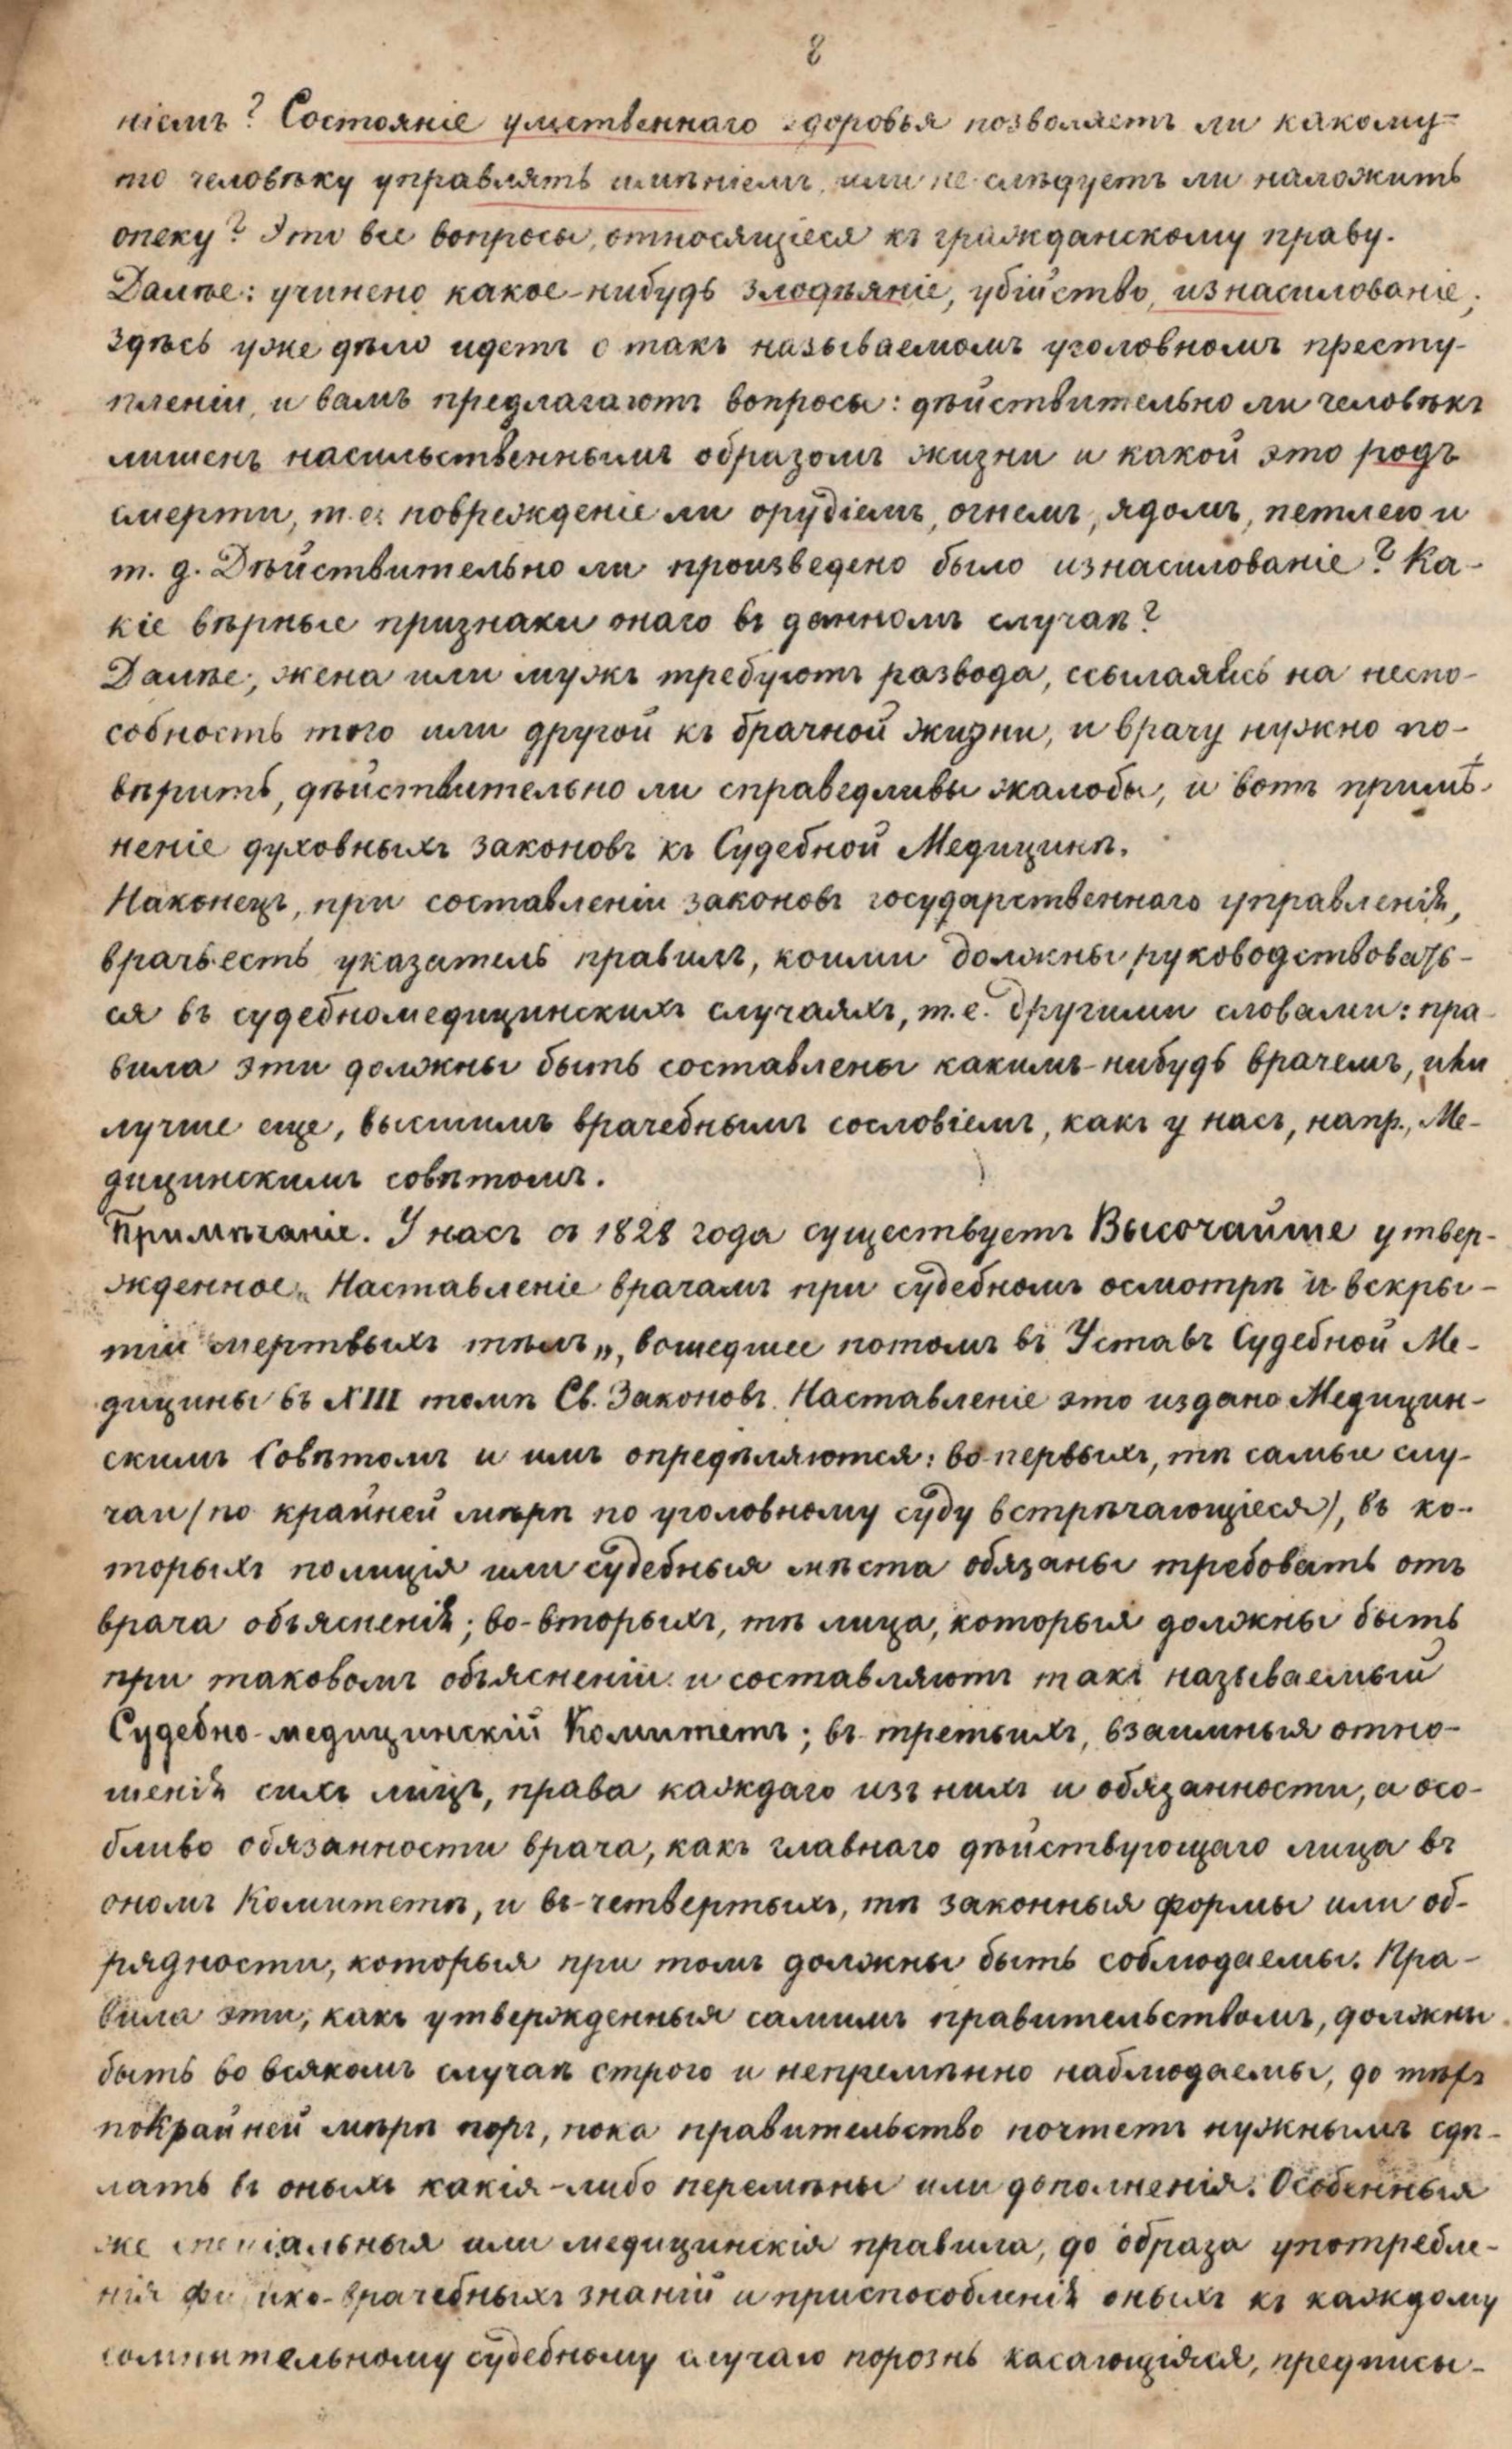 8
ніемъ? Состояніе умственнаго здоровья позволяетъ ли какому-
то человѣку управлять имѣніемъ, или не слѣдуетъ ли наложить
опеку? Это все вопросы, относящіеся къ гражданскому праву.
Далѣе: учинено какое-нибудь злодѣяніе, убійство, изнасилованіе;
здѣсь уже дѣло идетъ о такъ называемомъ уголовномъ престу-
пленіи, и вамъ предлагаютъ вопросы: дѣйствительно ли человѣкъ
лишенъ насильственнымъ образомъ жизни и какой это родъ
смерти, т.е. поврежденіе ли орудіемъ, огнемъ, ядомъ, петлею и
т. д. Дѣйствительно ли произведено было изнасилованіе? Ка-
кіе вѣрные признаки онаго въ данномъ случаѣ?
Далѣе, жена или мужъ требуютъ развода, ссылаясь на неспо-
собность того или другой къ брачной жизни, и врачу нужно по-
вѣрить, дѣйствительно ли справедливы жалобы, и вотъ примѣ-
неніе духовныхъ законовъ къ Судебной Медицинѣ.
Наконецъ, при составленіи законовъ государственнаго управленія,
врачъ есть указатель правилъ, коими должны руководствовать-
ся въ судебномедицинскихъ случаяхъ, т.е. другими словами: пра-
вила эти должны быть составлены какимъ-нибудь врачемъ, или
лучше еще, высшимъ врачебнымъ сословіемъ, какъ у насъ, напр., Ме-
дицинскимъ совѣтомъ.
Примѣчаніе. У насъ съ 1828 года существуетъ Высочайше утвер-
жденное „Наставленіе врачамъ при судебномъ осмотрѣ и вскры-
тіи мертвыхъ тѣлъ„, вошедшее потомъ въ Уставъ Судебной Ме-
дицины въ XIII томѣ Св. Законовъ. Наставленіе это издано Медицин-
скимъ Совѣтомъ и имъ опредѣляются: во-первыхъ, тѣ самые слу-
чаи (по крайней мѣрѣ по уголовному суду встрѣчающіеся), въ ко-
торыхъ полиція или судебныя мѣста обязаны требовать отъ
врача объясненія; во-вторыхъ, тѣ лица, которыя должны быть
при таковомъ объясненіи и составляютъ такъ называемый
Судебно-медицинскій Комитетъ; въ-третьихъ, взаимныя отно-
шенія сихъ лицъ, права каждаго изъ нихъ и обязанности, а осо-
бливо обязанности врача, какъ главнаго дѣйствующаго лица въ
ономъ Комитетѣ, и въ-четвертыхъ, тѣ законныя формы или об-
рядности, которыя при томъ должны быть соблюдаемы. Пра-
вила эти, какъ утвержденныя самимъ правительствомъ, должны
быть во всякомъ случаѣ строго и непремѣнно наблюдаемы, до тѣхъ
по крайней мѣрѣ поръ, пока правительство почтетъ нужнымъ сдѣ-
лать въ оныхъ какія-либо перемѣны или дополненія. Особенныя
же спеціальныя или медицинскія правила, до образа употребле-
нія физико-врачебныхъ знаній и приспособленія оныхъ къ каждому
сомнительному судебному случаю порознь касающіяся, предписы-